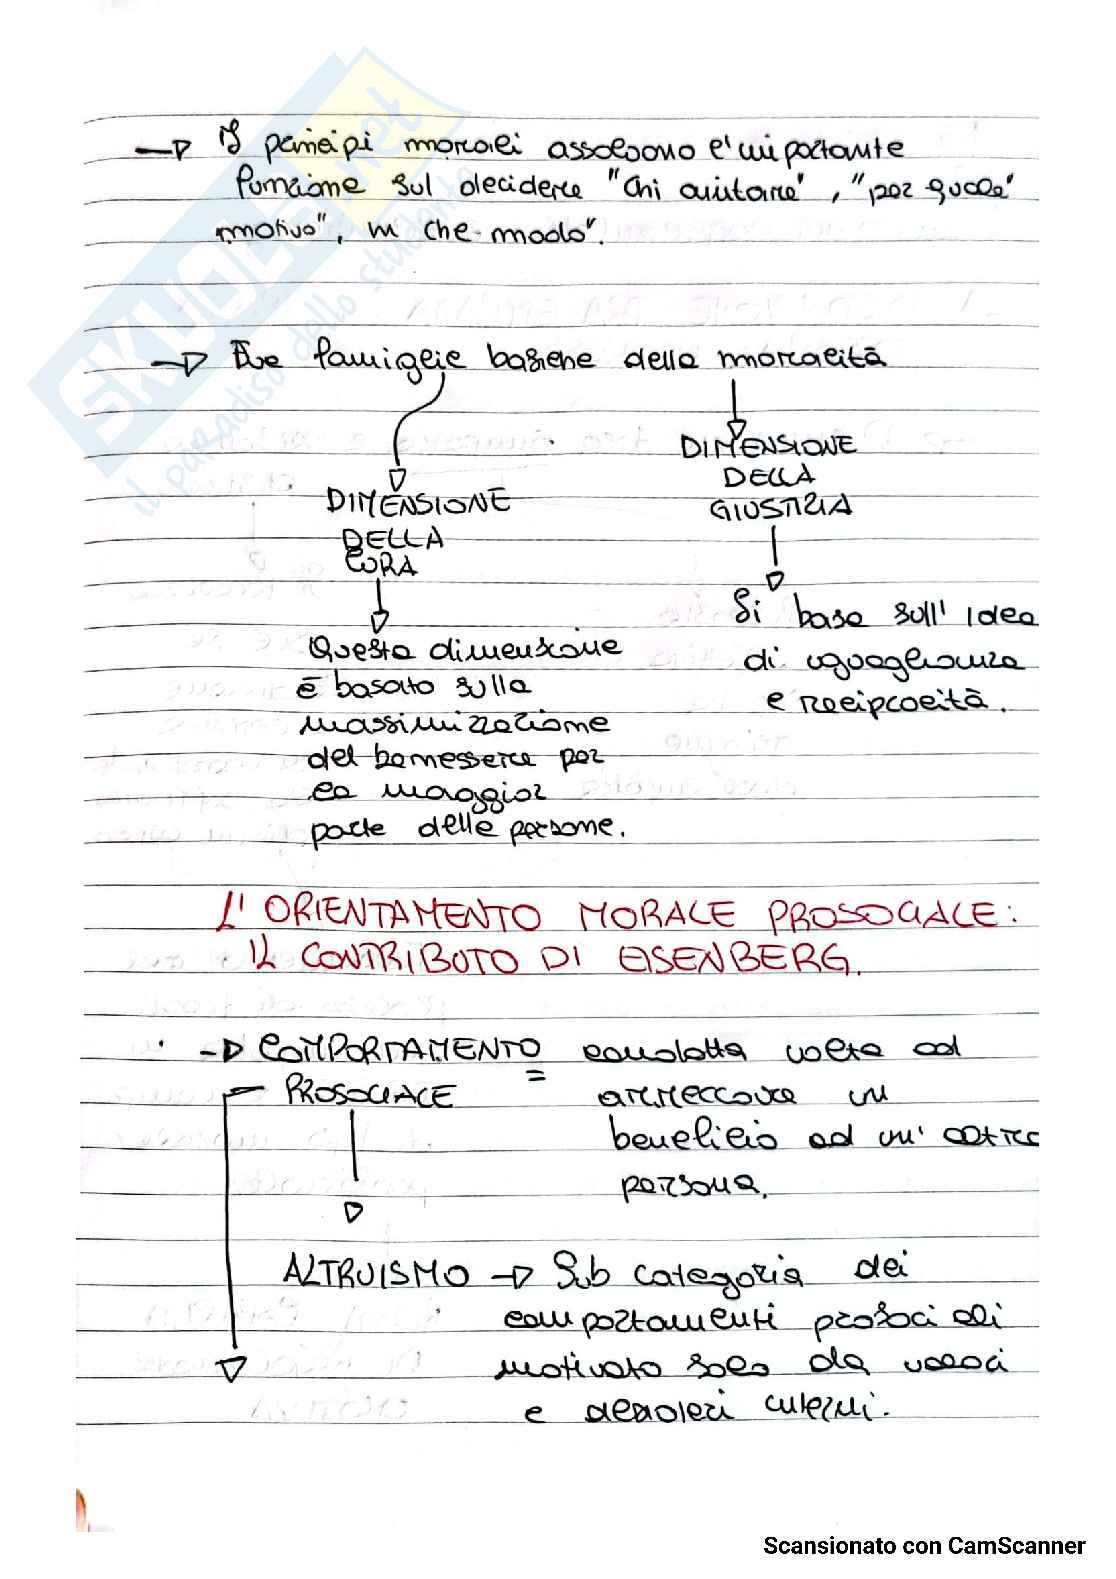 I principi morali assolvono l'importante
funzione sul decidere "Chi aiutare", "per quale"
motivo", in che modo".
Due famiglie basiche della moralità
DIMENSIONE
DELLA
CURA
Questa dimensione
è basata sulla
massimizzazione
del benessere per
la maggior
parte delle persone.
DIMENSIONE
DELLA
GIUSTIZIA
Si basa sull'idea
di uguaglianza
e reciprocità.
L'ORIENTAMENTO MORALE PROSOCIALE:
IL CONTRIBUTO DI EISENBERG.
COMPORTAMENTO = condotta volta ad
PROSOCIALE arreccare un
beneficio ad un'altra
persona.
ALTRUISMO → Sub categoria dei
comportamenti prosociali
motivato solo da valori
e desideri interni.
SKUOLA.net
il paradiso dello studente
Scansionato con CamScanner